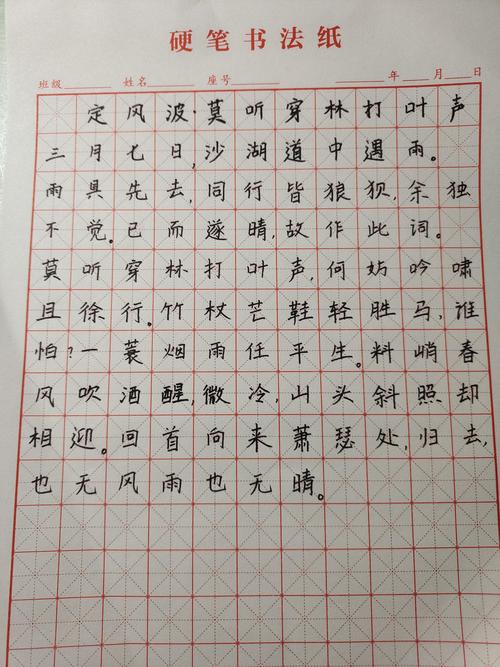 硬笔书法纸
班级 姓名 座号 年 月 日
定风波·莫听穿林打叶声
三月七日,沙湖道中遇雨。
雨具先去,同行皆狼狈,余独
不觉。已而遂晴,故作此词。
莫听穿林打叶声,何妨吟啸
且徐行。竹杖芒鞋轻胜马,谁
怕?一蓑烟雨任平生。料峭春
风吹酒醒,微冷,山头斜照却
相迎。回首向来萧瑟处,归去,
也无风雨也无晴。